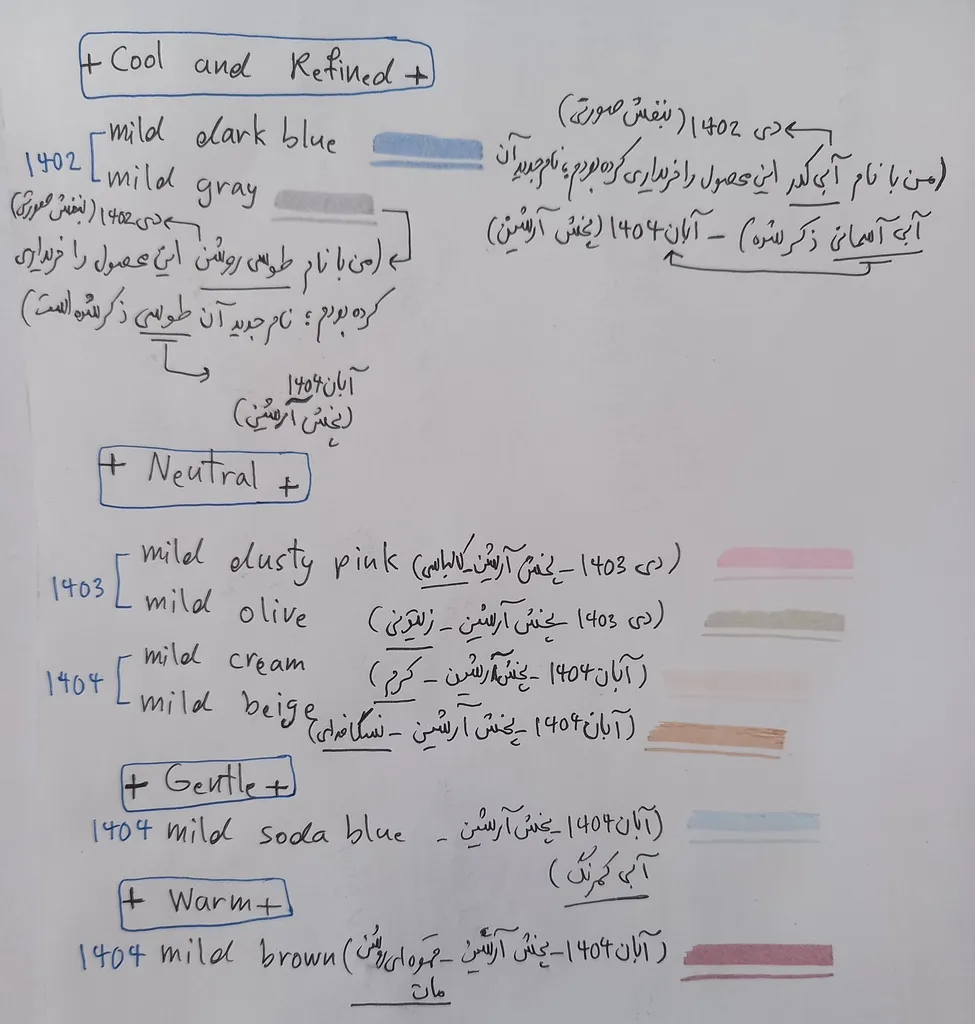 + Cool and Refined +
1402
mild dark blue
دی 1402 (بنفش صورتی)
(من با نام آبی کدر این محصول را خریداری کرده بودم؛ نام جدید آن
آبی آسمانی ذکر شده) - آبان 1404 (پخش آرشین)
mild gray
دی 1402 (بنفش صورتی)
(من با نام طوسی روشن این محصول را خریداری
کرده بودم؛ نام جدید آن طوسی ذکر شده است)
آبان 1404
(پخش آرشین)
+ Neutral +
1403
mild dusty pink (دی 1403 - پخش آرشین - کالباسی)
mild olive (دی 1403 - پخش آرشین - زیتونی)
1404
mild cream (آبان 1404 - پخش آرشین - کرم)
mild beige (آبان 1404 - پخش آرشین - نسکافه‌ای)
+ Gentle +
1404 mild soda blue - (آبان 1404 - پخش آرشین
آبی کمرنگ)
+ Warm +
1404 mild brown (آبان 1404 - پخش آرشین - قهوه‌ای روشن
مات